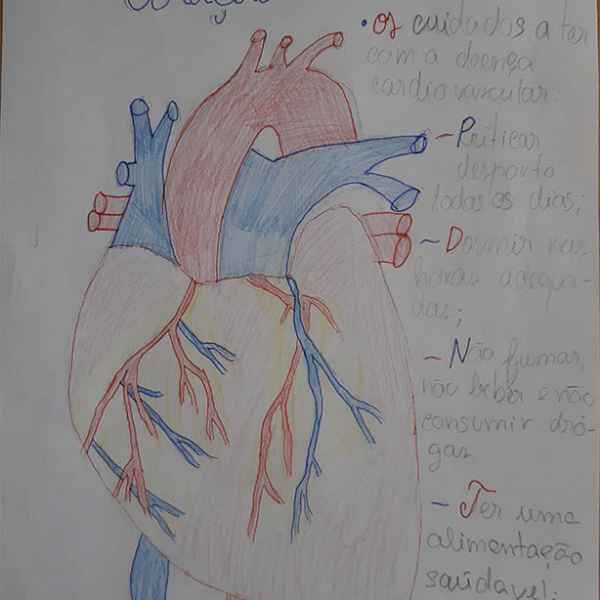 • Os cuidados a ter
com a doença
cardiovascular:
- Praticar
desporto
todos os dias;
- Dormir nas
horas adequa-
das;
- Não fumar,
não beber e não
consumir dro-
gas
- Ter uma
alimentação
saudavel;